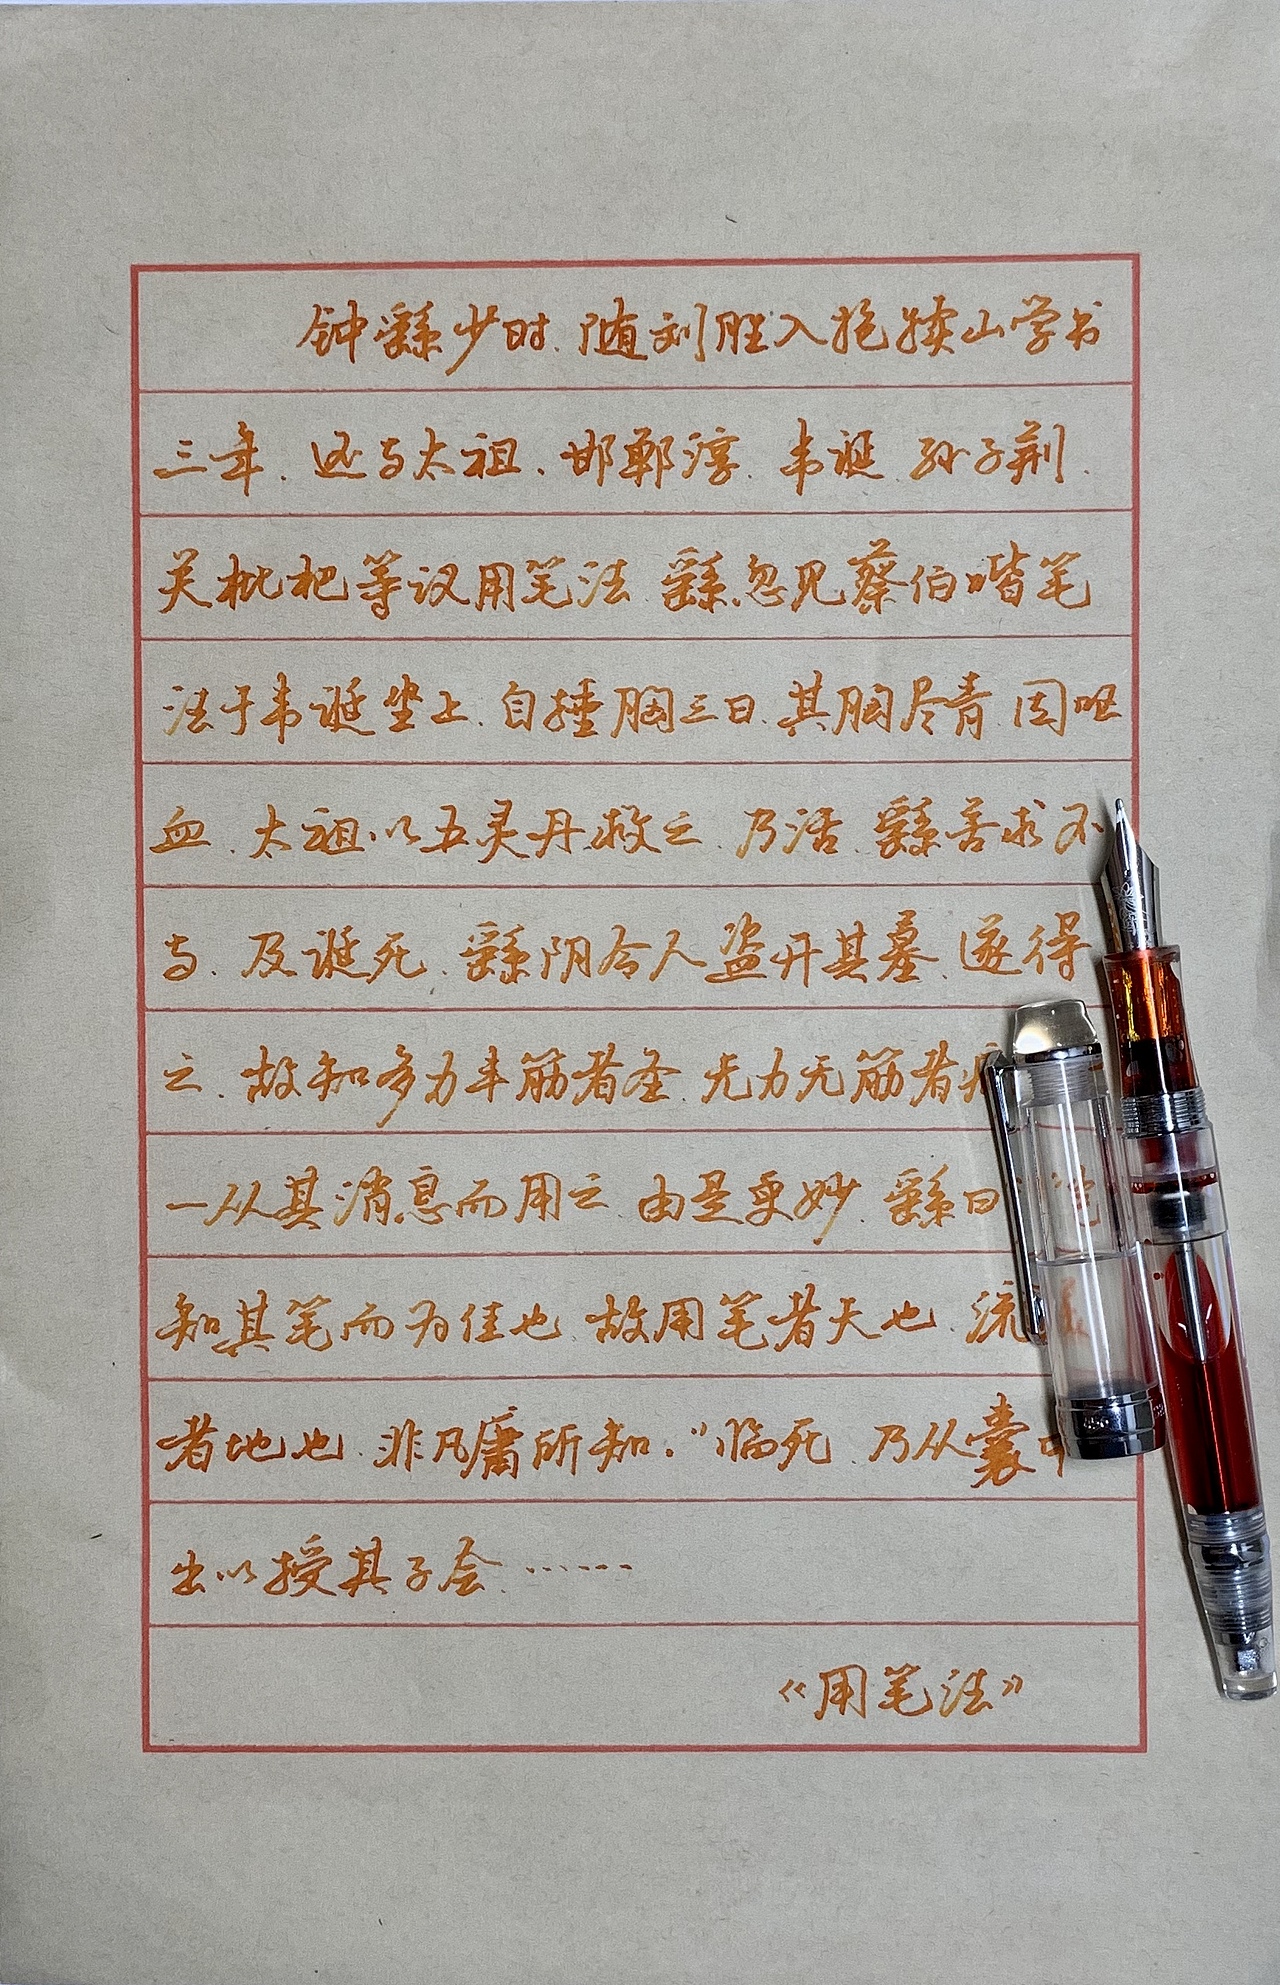 钟繇少时，随刘胜入抱犊山学书
三年，还与太祖、邯郸淳、韦诞、孙子荆、
关枇杷等议用笔法。繇忽见蔡伯喈笔
法于韦诞坐上，自捶胸三日，其胸尽青，因呕
血。太祖以五灵丹救之，乃活。繇苦求不
与。及诞死，繇阴令人盗开其墓，遂得
之，故知多力丰筋者圣，无力无筋者病
一从其消息而用之，由是更妙。繇曰
知其笔而为佳也。故用笔者天也，流美
者地也。非凡庸所知。”临死，乃从囊中
出以授其子会，……
《用笔法》